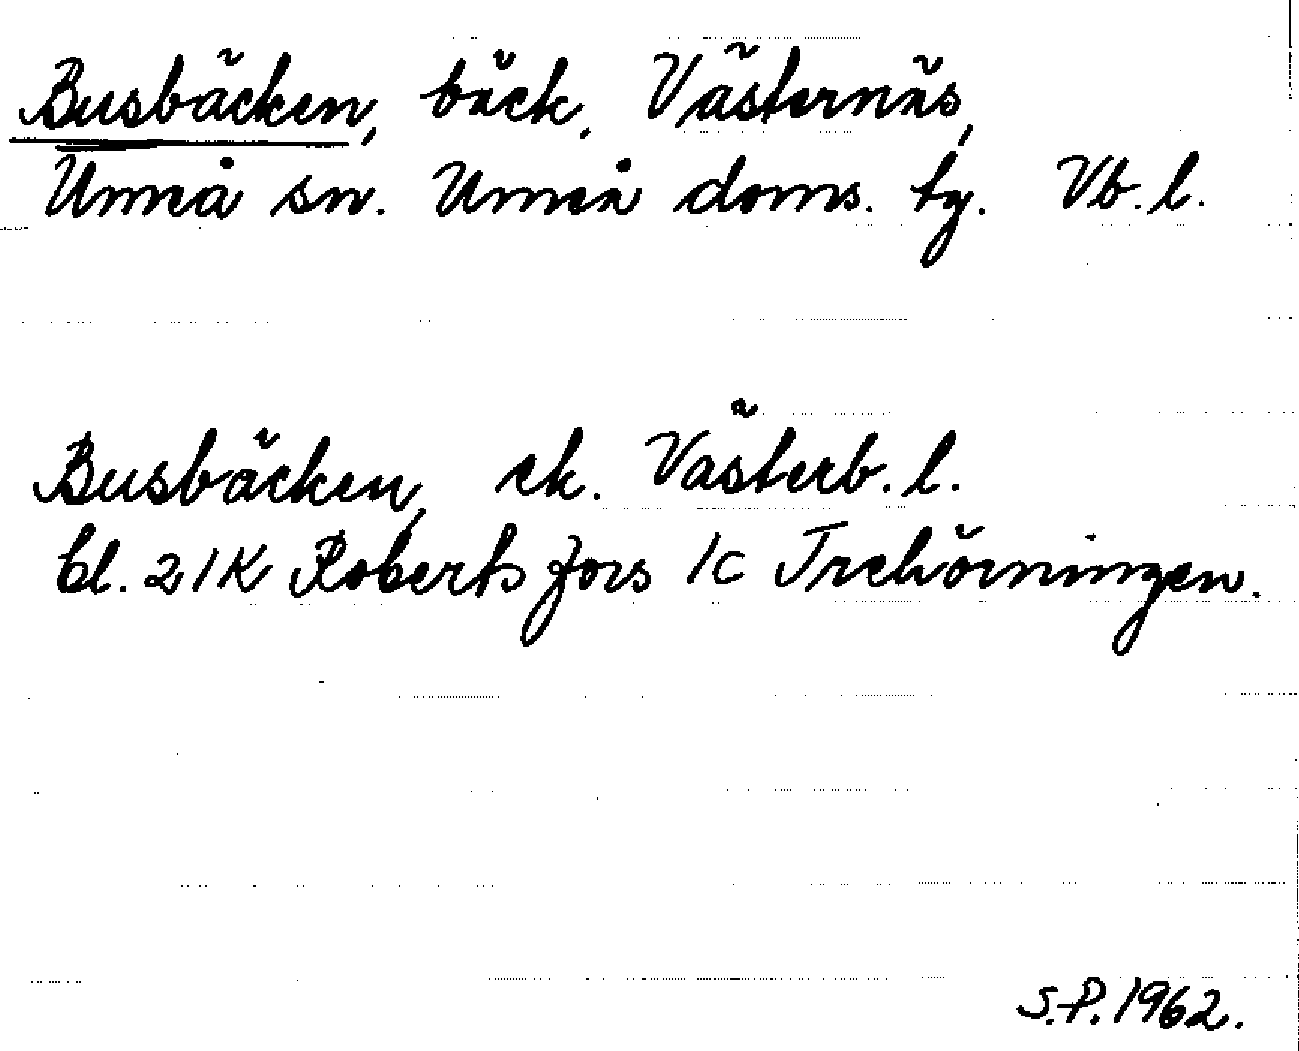 Busbäcken, bäck, Västernäs,
Umeå sn. Umeå doms. tg. Vb. l.
Busbäcken, ek. Västerb. l.
bl. 21K Robertsfors 1c Trehörningen.
S.P. 1962.